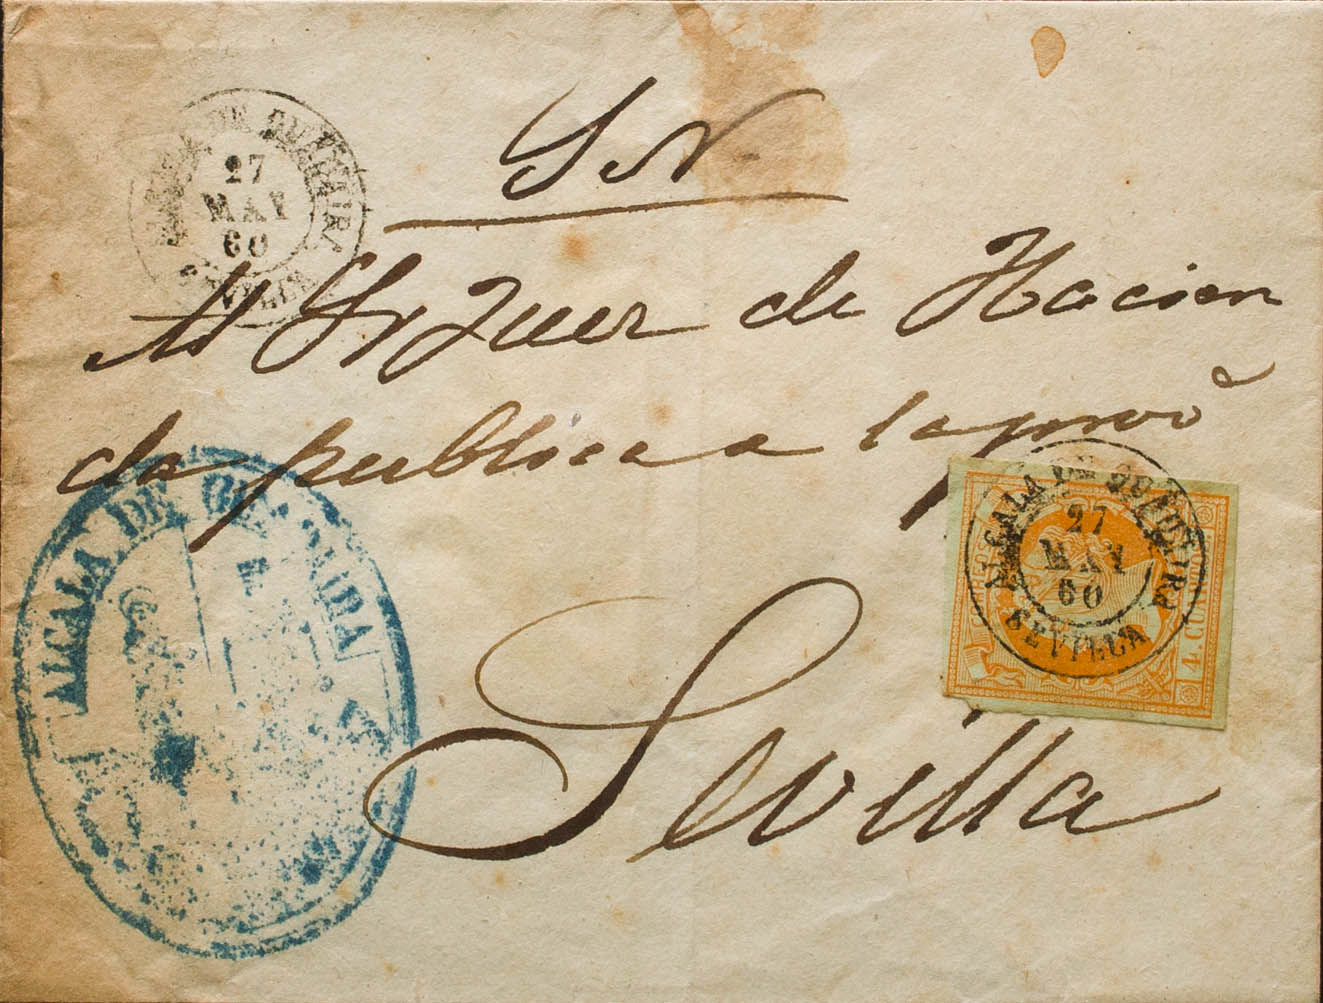 S N
ALCALA DE GUADAIRA
27
MAY
60
SEVILLA
Al Sr Juez de Hacien
da publica a la prov^a
ALCALA DE GUADAIRA
ALCALA DE GUADAIRA
27
MAY
60
SEVILLA
4. CUARTOS
Sevilla